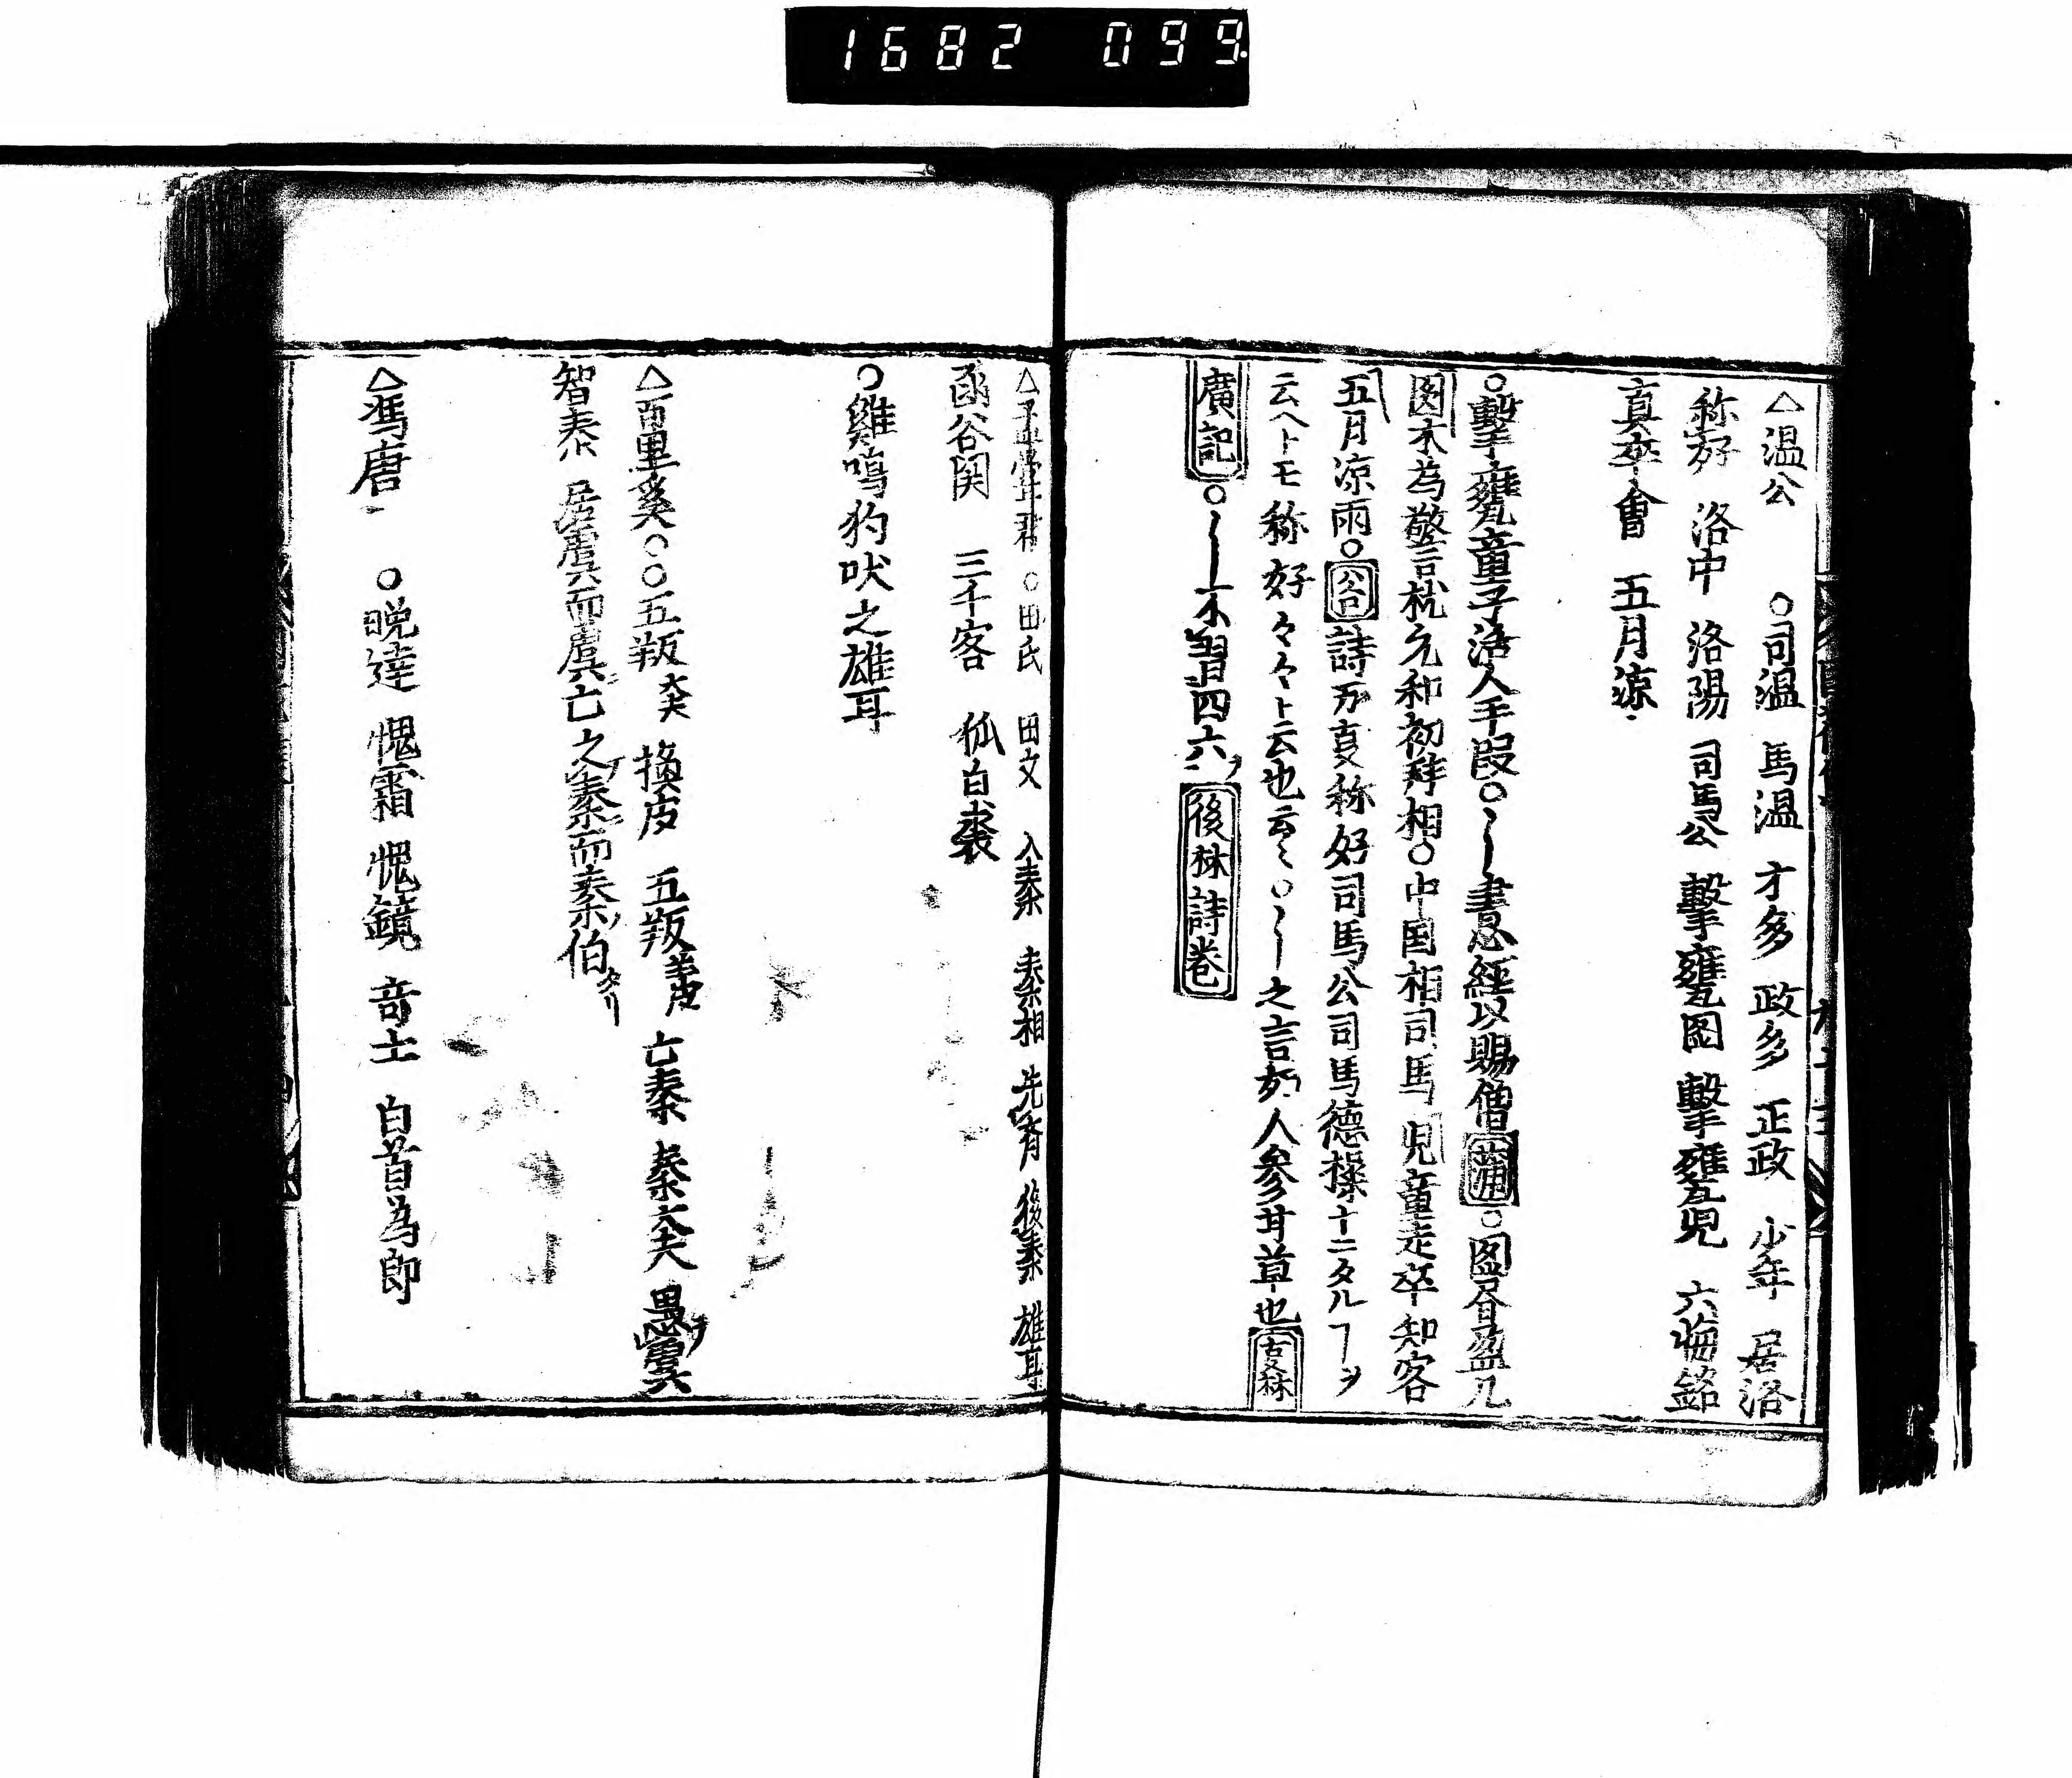 1682 099
△温公 ○司温 馬温 才多 政多 正政 少年 居洛
称好 洛中 洛陽 司馬公 擊甕圖 擊甕児 六悔銘
真率會 五月凉
○擊甕童子活人手段○〻書思經以賜僧蒲○図書盈几
図木為警枕元和初拜相○中国相司馬児童走卒知客
五月凉雨○谷詩万叓称好司馬公司馬德操十ニタルヿヲ
云ヘトモ称好々々ト云也云〻○〻之言如人参甘草也古文林
廣記○〻不習四六後林詩巻
△孟甞君 ○田氏 田文 入秦 秦相 先齊 後秦 雄耳
函谷関 三千客 狐白裘
○雞鳴狗吠之雄耳
△百里奚○○五羖大夫 換皮 五羖羊皮 亡秦 秦大夫 愚虞
智秦 居虞而虞亡之秦而秦伯タリ
△馮唐 ○晚達 愧霜 愧鏡 奇士 白首為郎